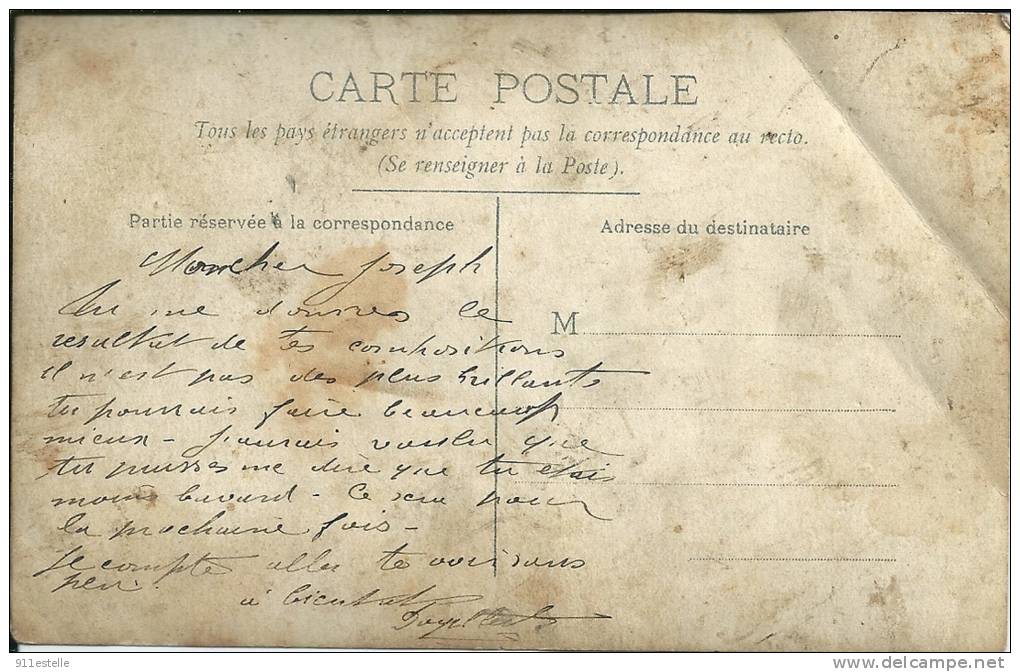 CARTE POSTALE
Tous les pays étrangers n'acceptent pas la correspondance au recto.
(Se renseigner à la Poste).
Partie réservée à la correspondance
Adresse du destinataire
M
Mon cher Joseph
Tu me donnes le
resultat de tes compositions
il n'est pas des plus brillants
tu pourrais faire beaucoup
mieux - J'aurais voulu que
tu puisses me dire que tu étais
moins bavard - Ce sera pour
la prochaine fois -
Je compte aller te voir sans
à bientot
911estelle
www.delcampe.net